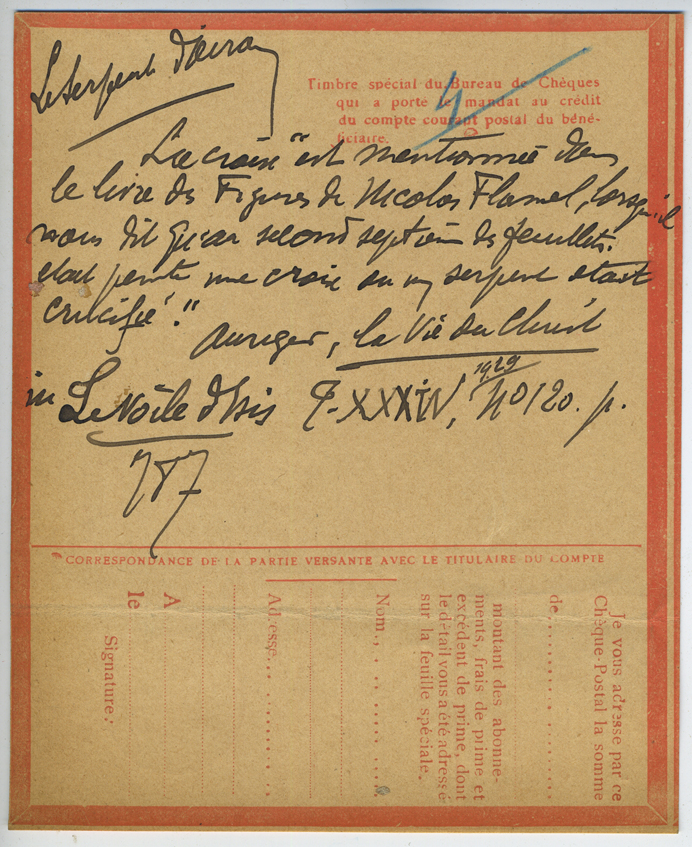 Le Serpent d'airain
Timbre spécial du Bureau de Chèques
qui a porté le mandat au crédit
du compte courant postal du béné-
ficiaire.
"La croix" est mentionnée dans
le livre des Figures de Nicolas Flamel, lorsqu'il
nous dit qu'au second septième des feuillets.
était peinte une croix ou un serpent était
crucifié."
Auriger, la Vie du Christ
in Le Voile d'Isis T-XXXIV, 1929 No 120. p.
787
CORRESPONDANCE DE LA PARTIE VERSANTE AVEC LE TITULAIRE DU COMPTE
Je vous adresse par ce
Chèque-Postal la somme
de
moutant des abonne-
ments, frais de prime et
excédent de prime, dont
le détail vous a été adressé
sur la feuille spéciale.
Nom
Adresse
A
le
Signature: